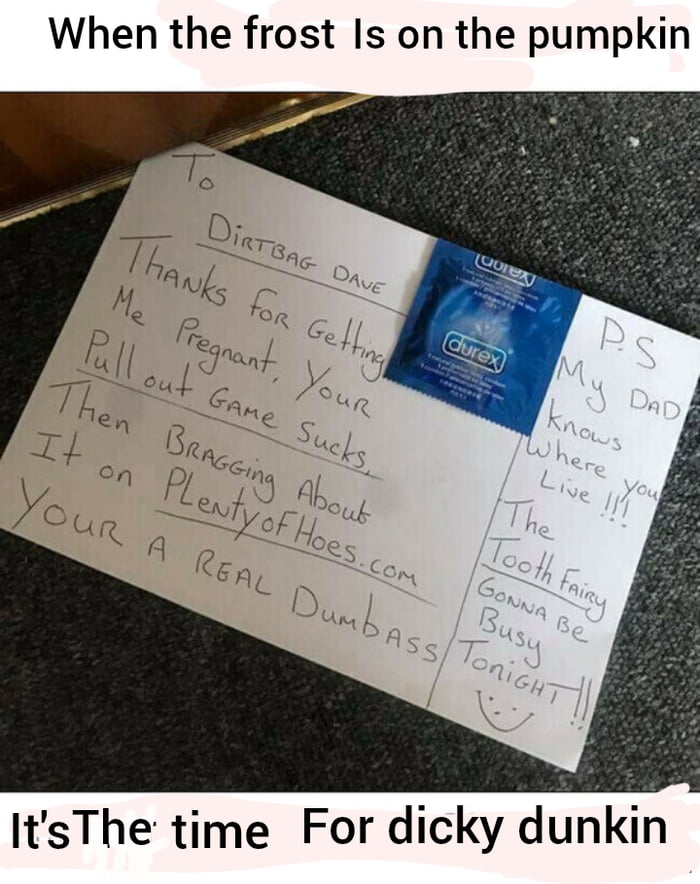 When the frost Is on the pumpkin
To
DIRTBAG DAVE
THANKS FOR GETTING
Me Pregnant, YOUR
Pull out GAME SUCKS,
Then BRAGGing About
It on PLentyOFHoes.com
YOUR A REAL DumbASS
durex
durex
P.S
My DAD
Knows
Where You
Live !!!
The
Tooth FAIRY
GONNA BE
Busy
TONIGHT!!
It'sThe time For dicky dunkin